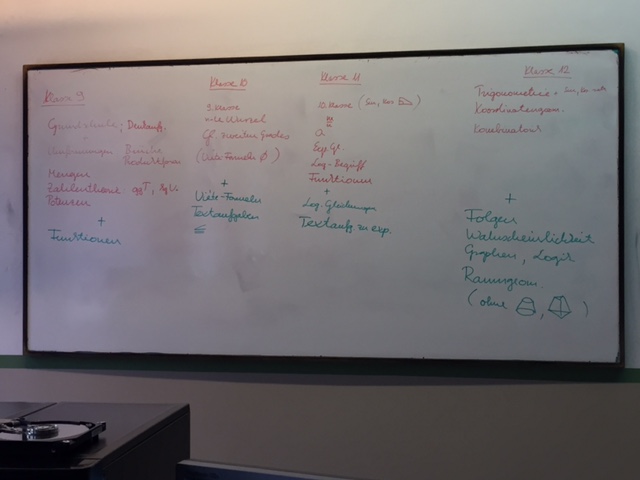 Klasse 9
Grundstrukt., Denkauf.
Umformungen Binome
Produktform
Mengen
Zahlentheorie ggT, kgV.
Potenzen
+
Funktionen
Klasse 10
9. Klasse
n-te Wurzel
Gl. zweiten Grades
(Viète-Formeln ∅)
+
Viète-Formeln
Textaufgaben
≤
Klasse 11
10. Klasse (Sin, Cos
Exp Gl.
Log-Begriff
Funktionen
+
Log. Gleichungen
Textaufg zu exp.
Klasse 12
Trigonometrie + Sin, Cos
Koordinatengeom.
Kombinatorik
+
Folgen
Wahrscheinlichkeit
Graphen, Logik
Raumgeom.
(ohne , )